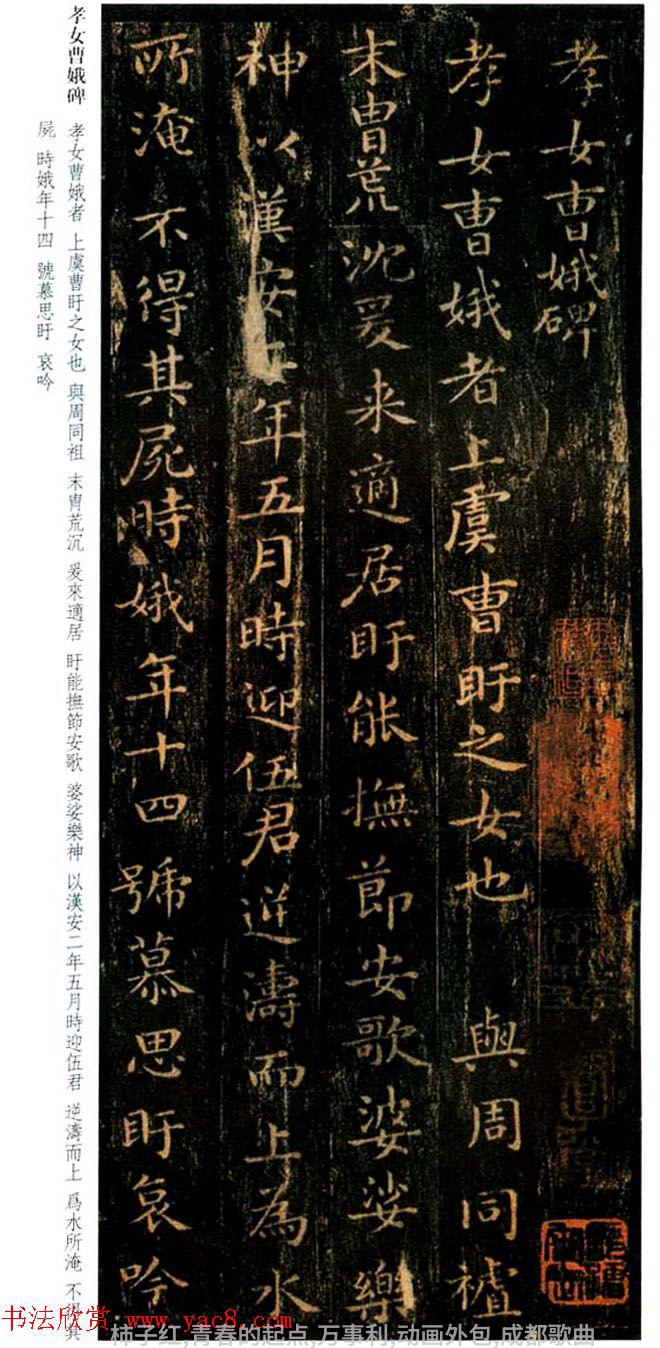 孝女曹娥碑
孝女曹娥者上虞曹盱之女也 與周同禃
末曺荒沈爰来適居盱能撫節安歌婆娑樂
神以漢安二年五月時迎伍君逆濤而上為水
所淹 不得其屍時娥年十四號慕思盱哀吟
孝女曹娥碑
孝女曹娥者 上虞曹盱之女也 與周同祖 末胄荒沉 爰來適居 盱能撫節安歌 婆娑樂神 以漢安二年五月時迎伍君 逆濤而上 爲水所淹 不得其
屍 時娥年十四 號慕思盱 哀吟
书法欣赏 www.yac8.com
柿子红,青春的起点,万事利,动画外包,成都歌曲